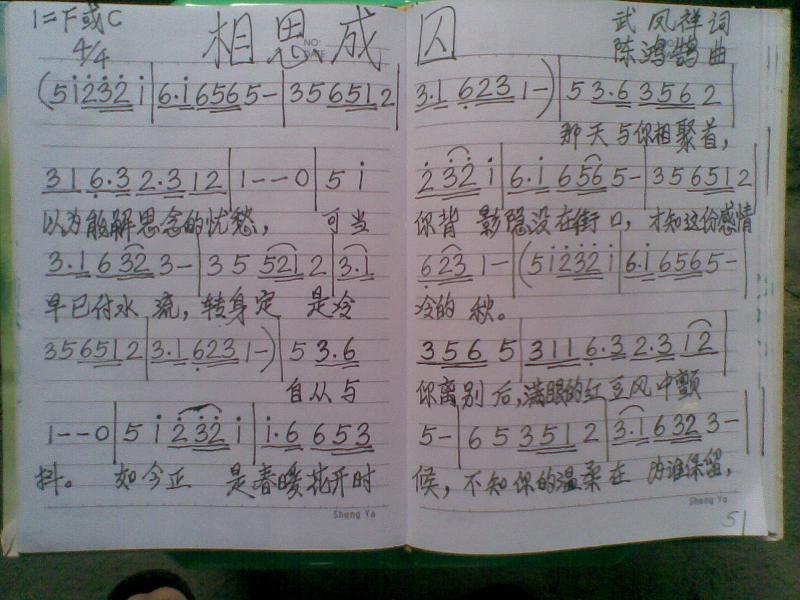 1=F或C 相思成囚 武凤祥词
4/4 陈鸿鹄曲
(5 i 2 3 2 i | 6. i 6 5 6 5 - | 3 5 6 5 1 2 | 3. 1 6 2 3 1 - ) | 5 3. 6 3 5 6 2
那天与你相聚首,
3 1 6. 3 2. 3 1 2 | 1 - - 0 | 5 i 2 3 2 i | 6. i 6 5 6 5 - | 3 5 6 5 1 2
以为能解思念的忧愁, 可当你背 影隐没在街口, 才知这份感情
3. 1 6 3 2 3 - | 3 5 5 2 1 2 | 3. 1 6 2 3 1 - | (5 i 2 3 2 i | 6. i 6 5 6 5 -
早已付水 流, 转身定 是冷冷的 秋。
3 5 6 5 1 2 | 3. 1 6 2 3 1 - ) | 5 3. 6 3 5 6 5 | 3 1 1 6. 3 2. 3 1 2
自从与你离别后, 满眼的红豆风中颤
1 - - 0 | 5 i 2 3 2 i | i. 6 6 5 3 5 - | 6 5 3 5 1 2 | 3. 1 6 3 2 3 -
抖。 如今正 是春暖花开时候, 不知你的温柔在 为谁保留,
Sheng Ya Sheng Ya
51